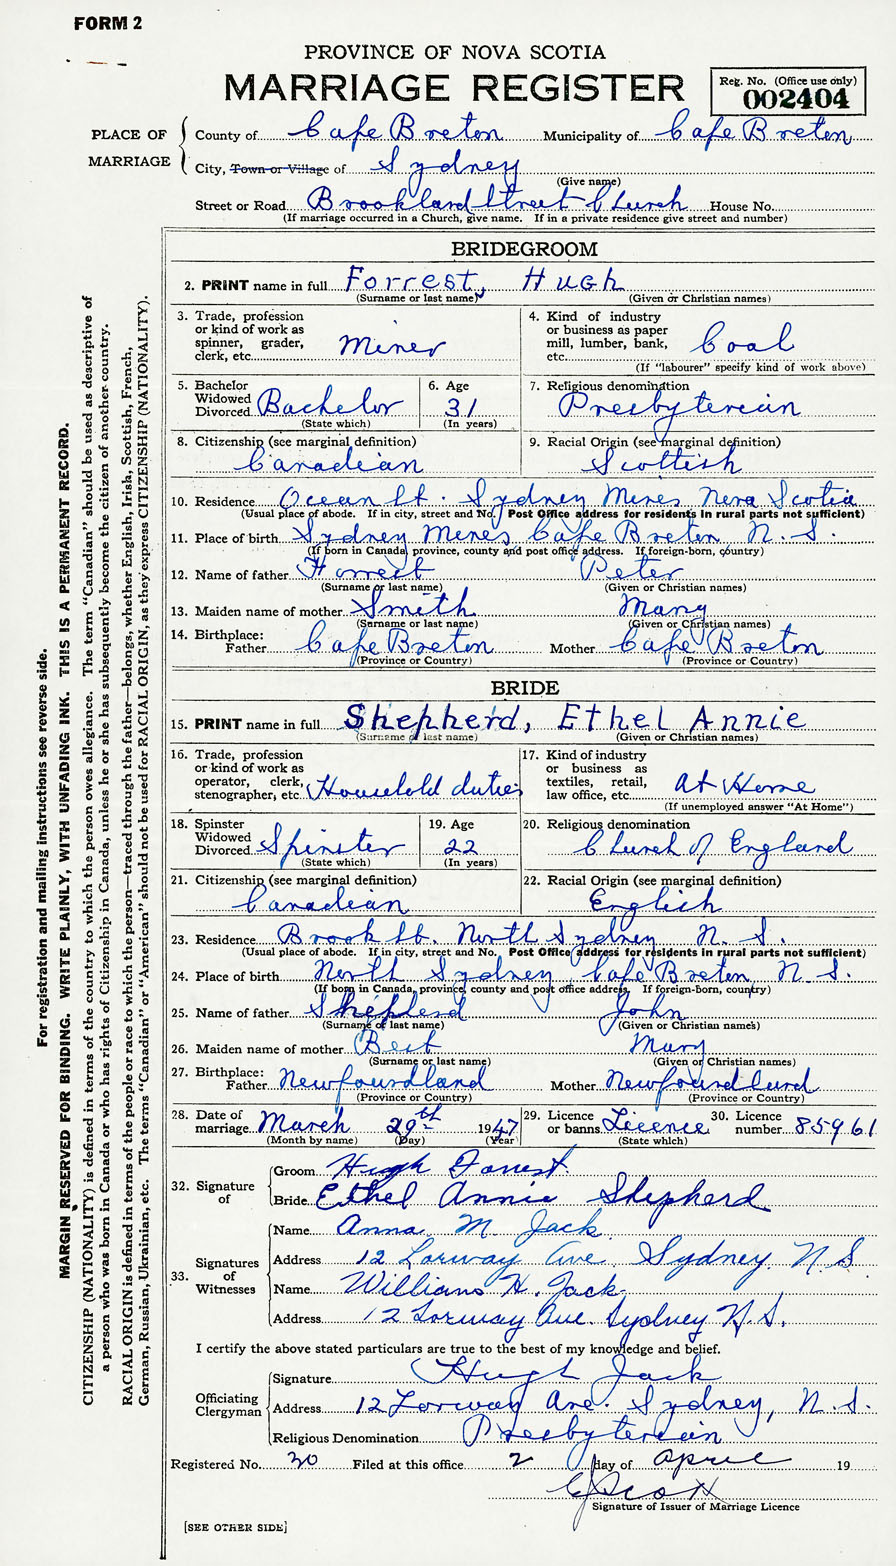 FORM 2
PROVINCE OF NOVA SCOTIA
MARRIAGE REGISTER
Reg. No. (Office use only)
002404
PLACE OF MARRIAGE
County of Cape Breton Municipality of Cape Breton
City, Town or Village of Sydney
(Give name)
Street or Road Brookland Street Church House No.
(If marriage occurred in a Church, give name. If in a private residence give street and number)
BRIDEGROOM
2. PRINT name in full Forrest, Hugh
(Surname or last name) (Given or Christian names)
3. Trade, profession or kind of work as spinner, grader, clerk, etc. Miner
4. Kind of industry or business as paper mill, lumber, bank, etc. Coal
(If "labourer" specify kind of work above)
5. Bachelor Widowed Divorced Bachelor
(State which)
6. Age 31
(In years)
7. Religious denomination Presbyterian
8. Citizenship (see marginal definition) Canadian
9. Racial Origin (see marginal definition) Scottish
10. Residence Ocean St. Sydney Mines Nova Scotia
(Usual place of abode. If in city, street and No. Post Office address for residents in rural parts not sufficient)
11. Place of birth Sydney Mines Cape Breton N. S.
(If born in Canada, province, county and post office address. If foreign-born, country)
12. Name of father Forrest Peter
(Surname or last name) (Given or Christian names)
13. Maiden name of mother Smith Mary
(Surname or last name) (Given or Christian names)
14. Birthplace: Father Cape Breton Mother Cape Breton
(Province or Country) (Province or Country)
BRIDE
15. PRINT name in full Shepherd, Ethel Annie
(Surname or last name) (Given or Christian names)
16. Trade, profession or kind of work as operator, clerk, stenographer, etc. Household duties
17. Kind of industry or business as textiles, retail, law office, etc. At Home
(If unemployed answer "At Home")
18. Spinster Widowed Divorced Spinster
(State which)
19. Age 22
(In years)
20. Religious denomination Church of England
21. Citizenship (see marginal definition) Canadian
22. Racial Origin (see marginal definition) English
23. Residence Brook St. North Sydney N. S.
(Usual place of abode. If in city, street and No. Post Office address for residents in rural parts not sufficient)
24. Place of birth North Sydney Cape Breton N. S.
(If born in Canada, province, county and post office address. If foreign-born, country)
25. Name of father Shepherd John
(Surname or last name) (Given or Christian names)
26. Maiden name of mother Best Mary
(Surname or last name) (Given or Christian names)
27. Birthplace: Father Newfoundland Mother Newfoundland
(Province or Country) (Province or Country)
28. Date of marriage March 29th 1947
(Month by name) (Day) (Year)
29. Licence or banns Licence
(State which)
30. Licence number 85961
32. Signature of
Groom Hugh Forrest
Bride Ethel Annie Shepherd
33. Signatures of Witnesses
Name Anna M. Jack
Address 12 Lorway Ave. Sydney N S
Name William H. Jack
Address 12 Lorway Ave. Sydney N.S.
I certify the above stated particulars are true to the best of my knowledge and belief.
Officiating Clergyman
Signature Hugh Jack
Address 12 Lorway Ave. Sydney, N. S.
Religious Denomination Presbyterian
Registered No. 30 Filed at this office 2 day of April 19
Signature of Issuer of Marriage Licence
[SEE OTHER SIDE]
For registration and mailing instructions see reverse side.
MARGIN RESERVED FOR BINDING. WRITE PLAINLY, WITH UNFADING INK. THIS IS A PERMANENT RECORD.
CITIZENSHIP (NATIONALITY) is defined in terms of the country to which the person owes allegiance. The term "Canadian" should be used as descriptive of
a person who was born in Canada or who has rights of Citizenship in Canada, unless he or she has subsequently become the citizen of another country.
RACIAL ORIGIN is defined in terms of the people or race to which the person—traced through the father—belongs, whether English, Irish, Scottish, French,
German, Russian, Ukrainian, etc. The terms "Canadian" or "American" should not be used for RACIAL ORIGIN, as they express CITIZENSHIP (NATIONALITY).